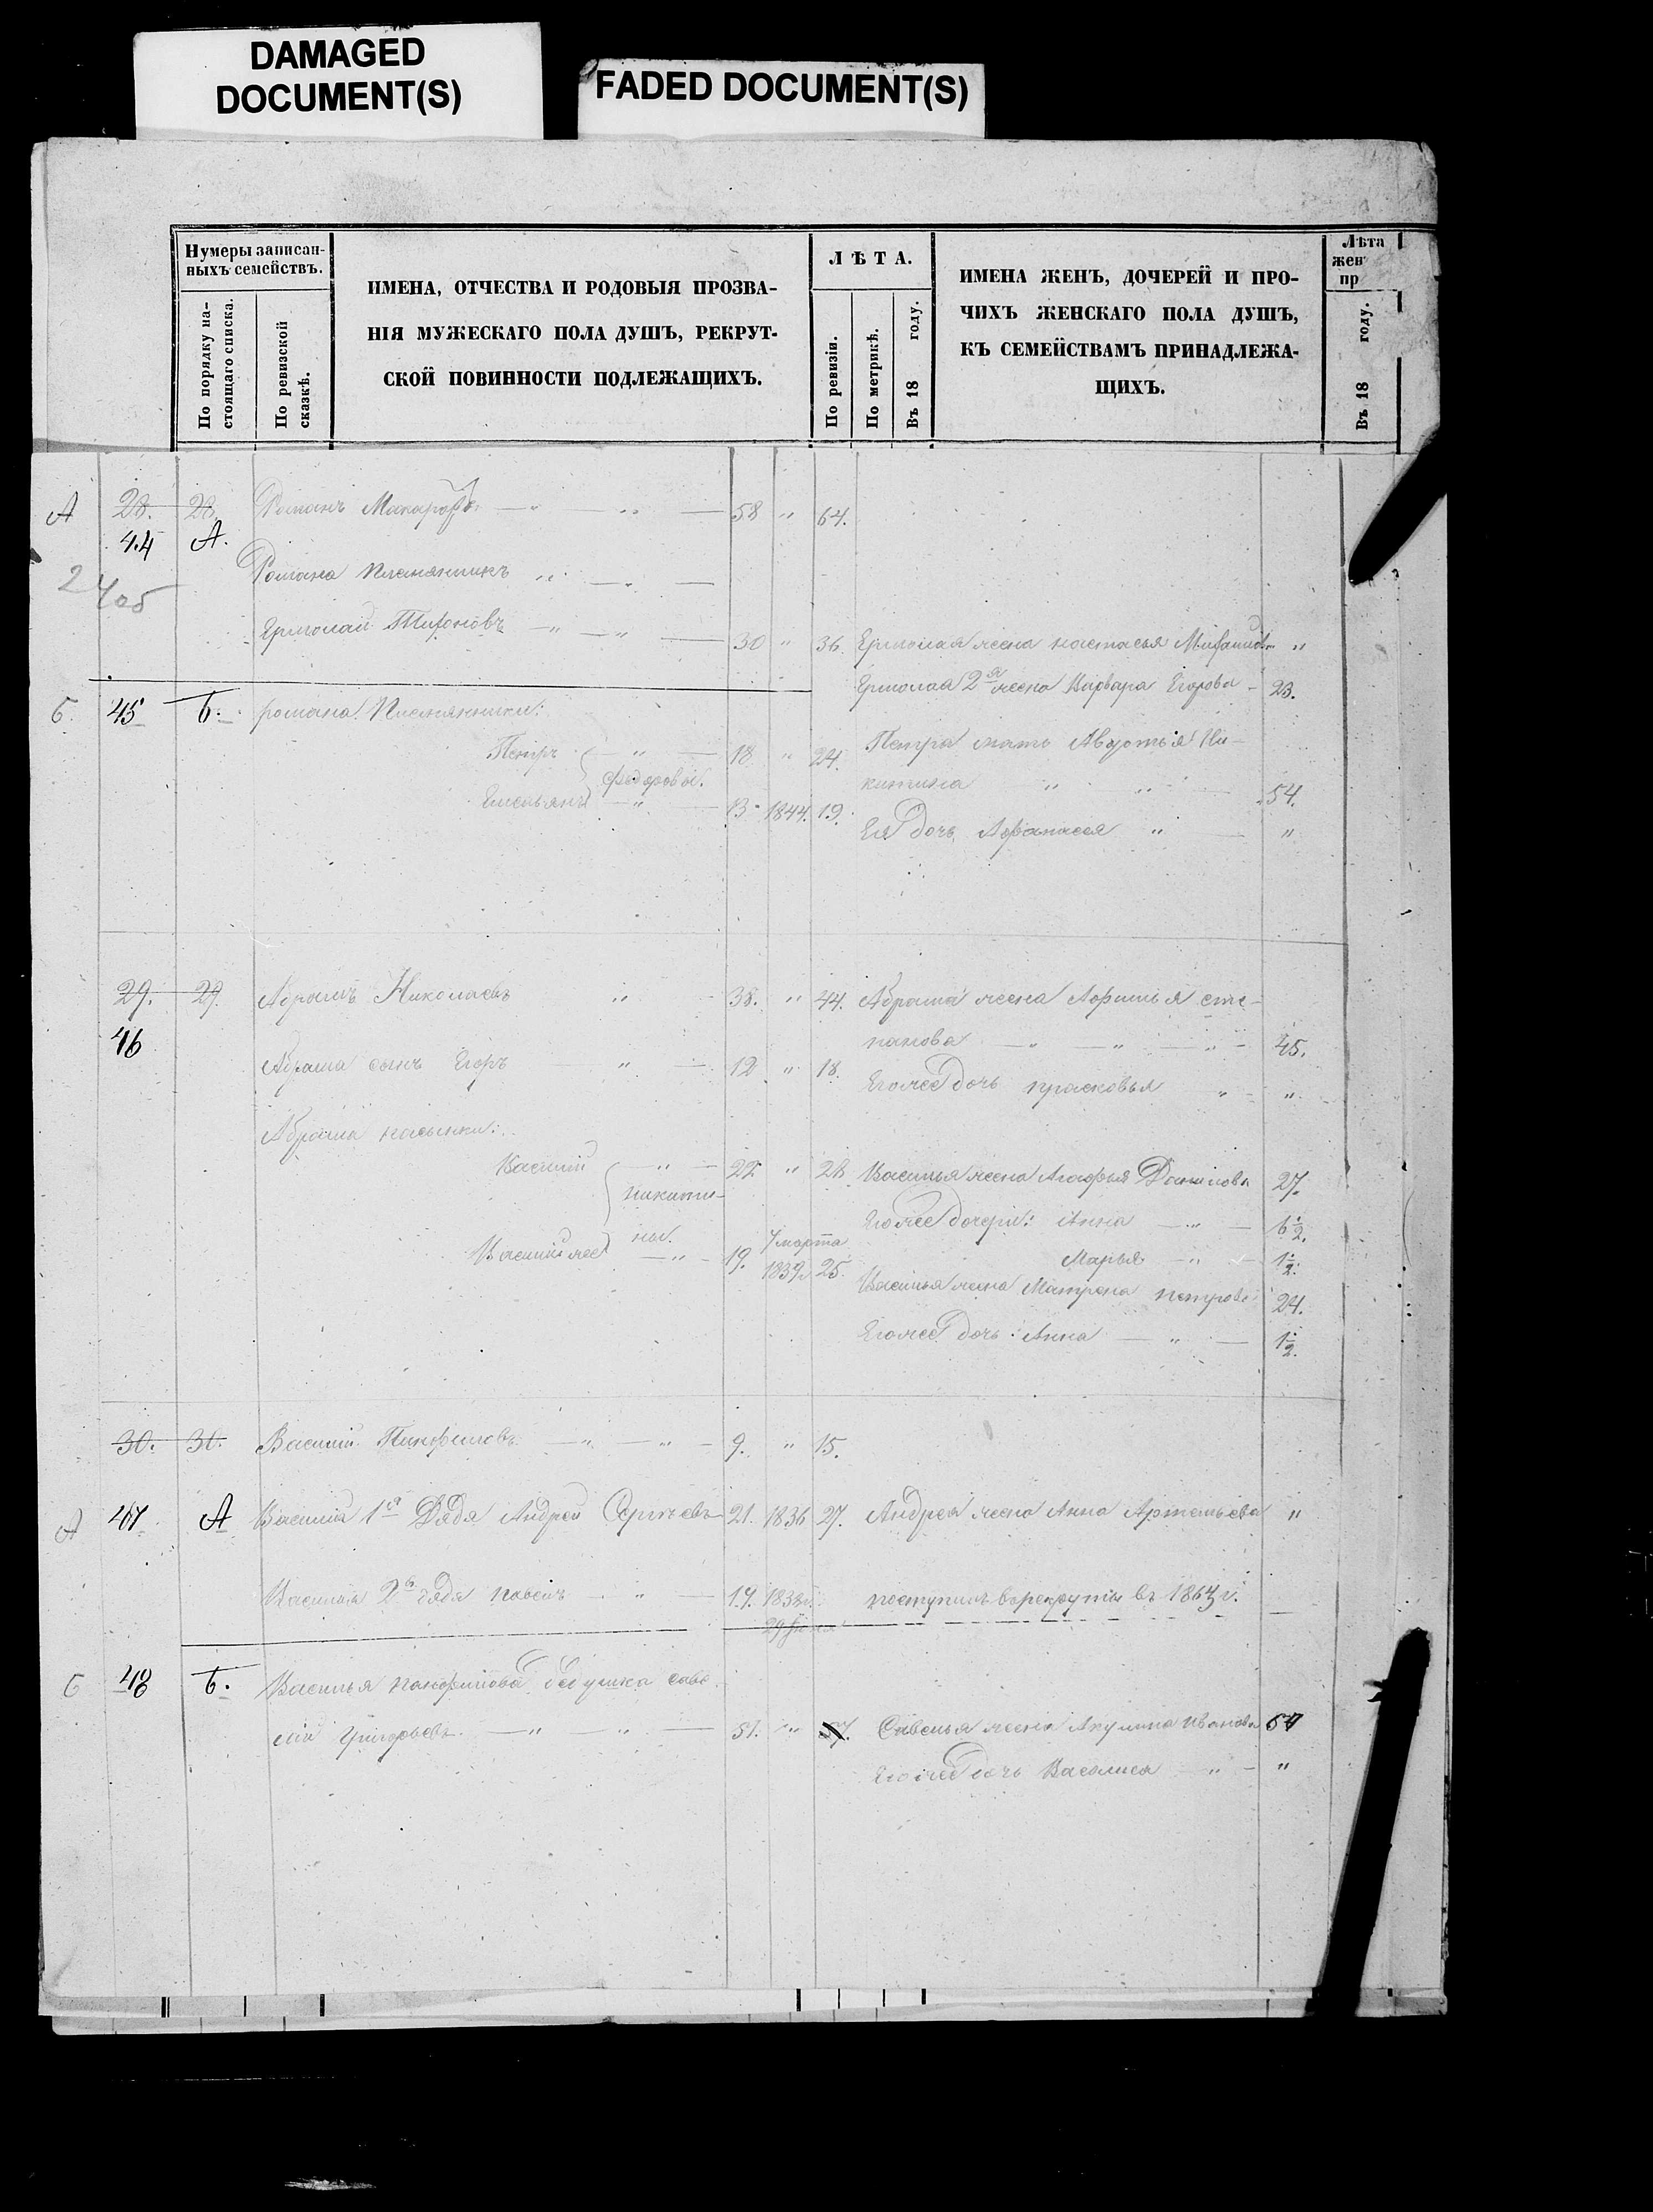 DAMAGED
DOCUMENT(S)
FADED DOCUMENT(S)
Нумеры записан-
ныхъ семействъ.
По порядку на-
стоящаго списка.
По ревизской
сказкѣ.
ИМЕНА, ОТЧЕСТВА И РОДОВЫЯ ПРОЗВА-
НІЯ МУЖЕСКАГО ПОЛА ДУШЪ, РЕКРУТ-
СКОЙ ПОВИННОСТИ ПОДЛЕЖАЩИХЪ.
ЛѢТА.
По ревизіи.
По метрикѣ.
Въ 18 году.
ИМЕНА ЖЕНЪ, ДОЧЕРЕЙ И ПРО-
ЧИХЪ ЖЕНСКАГО ПОЛА ДУШЪ,
КЪ СЕМЕЙСТВАМЪ ПРИНАДЛЕЖА-
ЩИХЪ.
Лѣта
жен
пр
Въ 18 году.
А 28. 28 Романъ Макаровъ — " — " — 58 " 64.
44 А.
24об
Романа племянникъ " — " —
Ермолай Тихоновъ — " — " — 30 " 36. Ермолая жена настасья "
Ермолая 2я жена Варвара Егорова - 23.
Б. 45 Б. романа племянники:
Петръ — " — 18 " 24. Петра мать Авдотья Ни-
Федоровы. китина " " — 54.
Емельянъ — " — 13 1844. 19. Ея дочь Афанасея " — "
29. 29. Абрамъ Николаевъ " - 38. " 44. Абрама жена Афимья сте-
46 панова — " — " — " - 45.
Абрама сынъ Егоръ — " — 12 " 18. Егожее дочь прасковья " - "
Абрама пасынки:
Василий — " — 22 " 28. Василья жена Агафья Данилова 27.
никити-
ны. Егожее дочери: Анна — " — 6½.
Василий же — " - 19. 7 марта 1839г. 25. Марья — " — 1½.
Василья жена Матрена петрова 24.
Егожее дочь: Анна — " — 1½.
30. 30. Василий Панфиловъ — " — " - 9. " 15.
А 47. А Василия 1й Дядя Андрей Сергѣевъ 21. 1836 27. Андрея жена Анна Артемьева "
Василия 2й дядя — " — 17. 1838г. поступилъ врекруты въ 1863г.
Б 48 Б. Василья панфилова дедушка саве-
лий Григорьевъ — " " — 51. " 57. Савелья жена Акулина Иванова 57
Егожее дочь Василиса — " - "